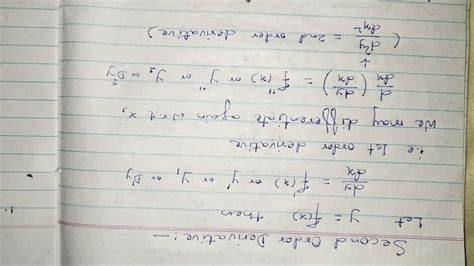 Second Order Derivative :-
Let y = f(x) then
dy/dx = f'(x) or y' or y₁ or Dy
i.e Ist order derivative
We may differentiate again w.r.t x,
d/dx (dy/dx) = f''(x) or y'' or y₂ or D²y
↓
(d²y/dx² = 2nd order derivative)